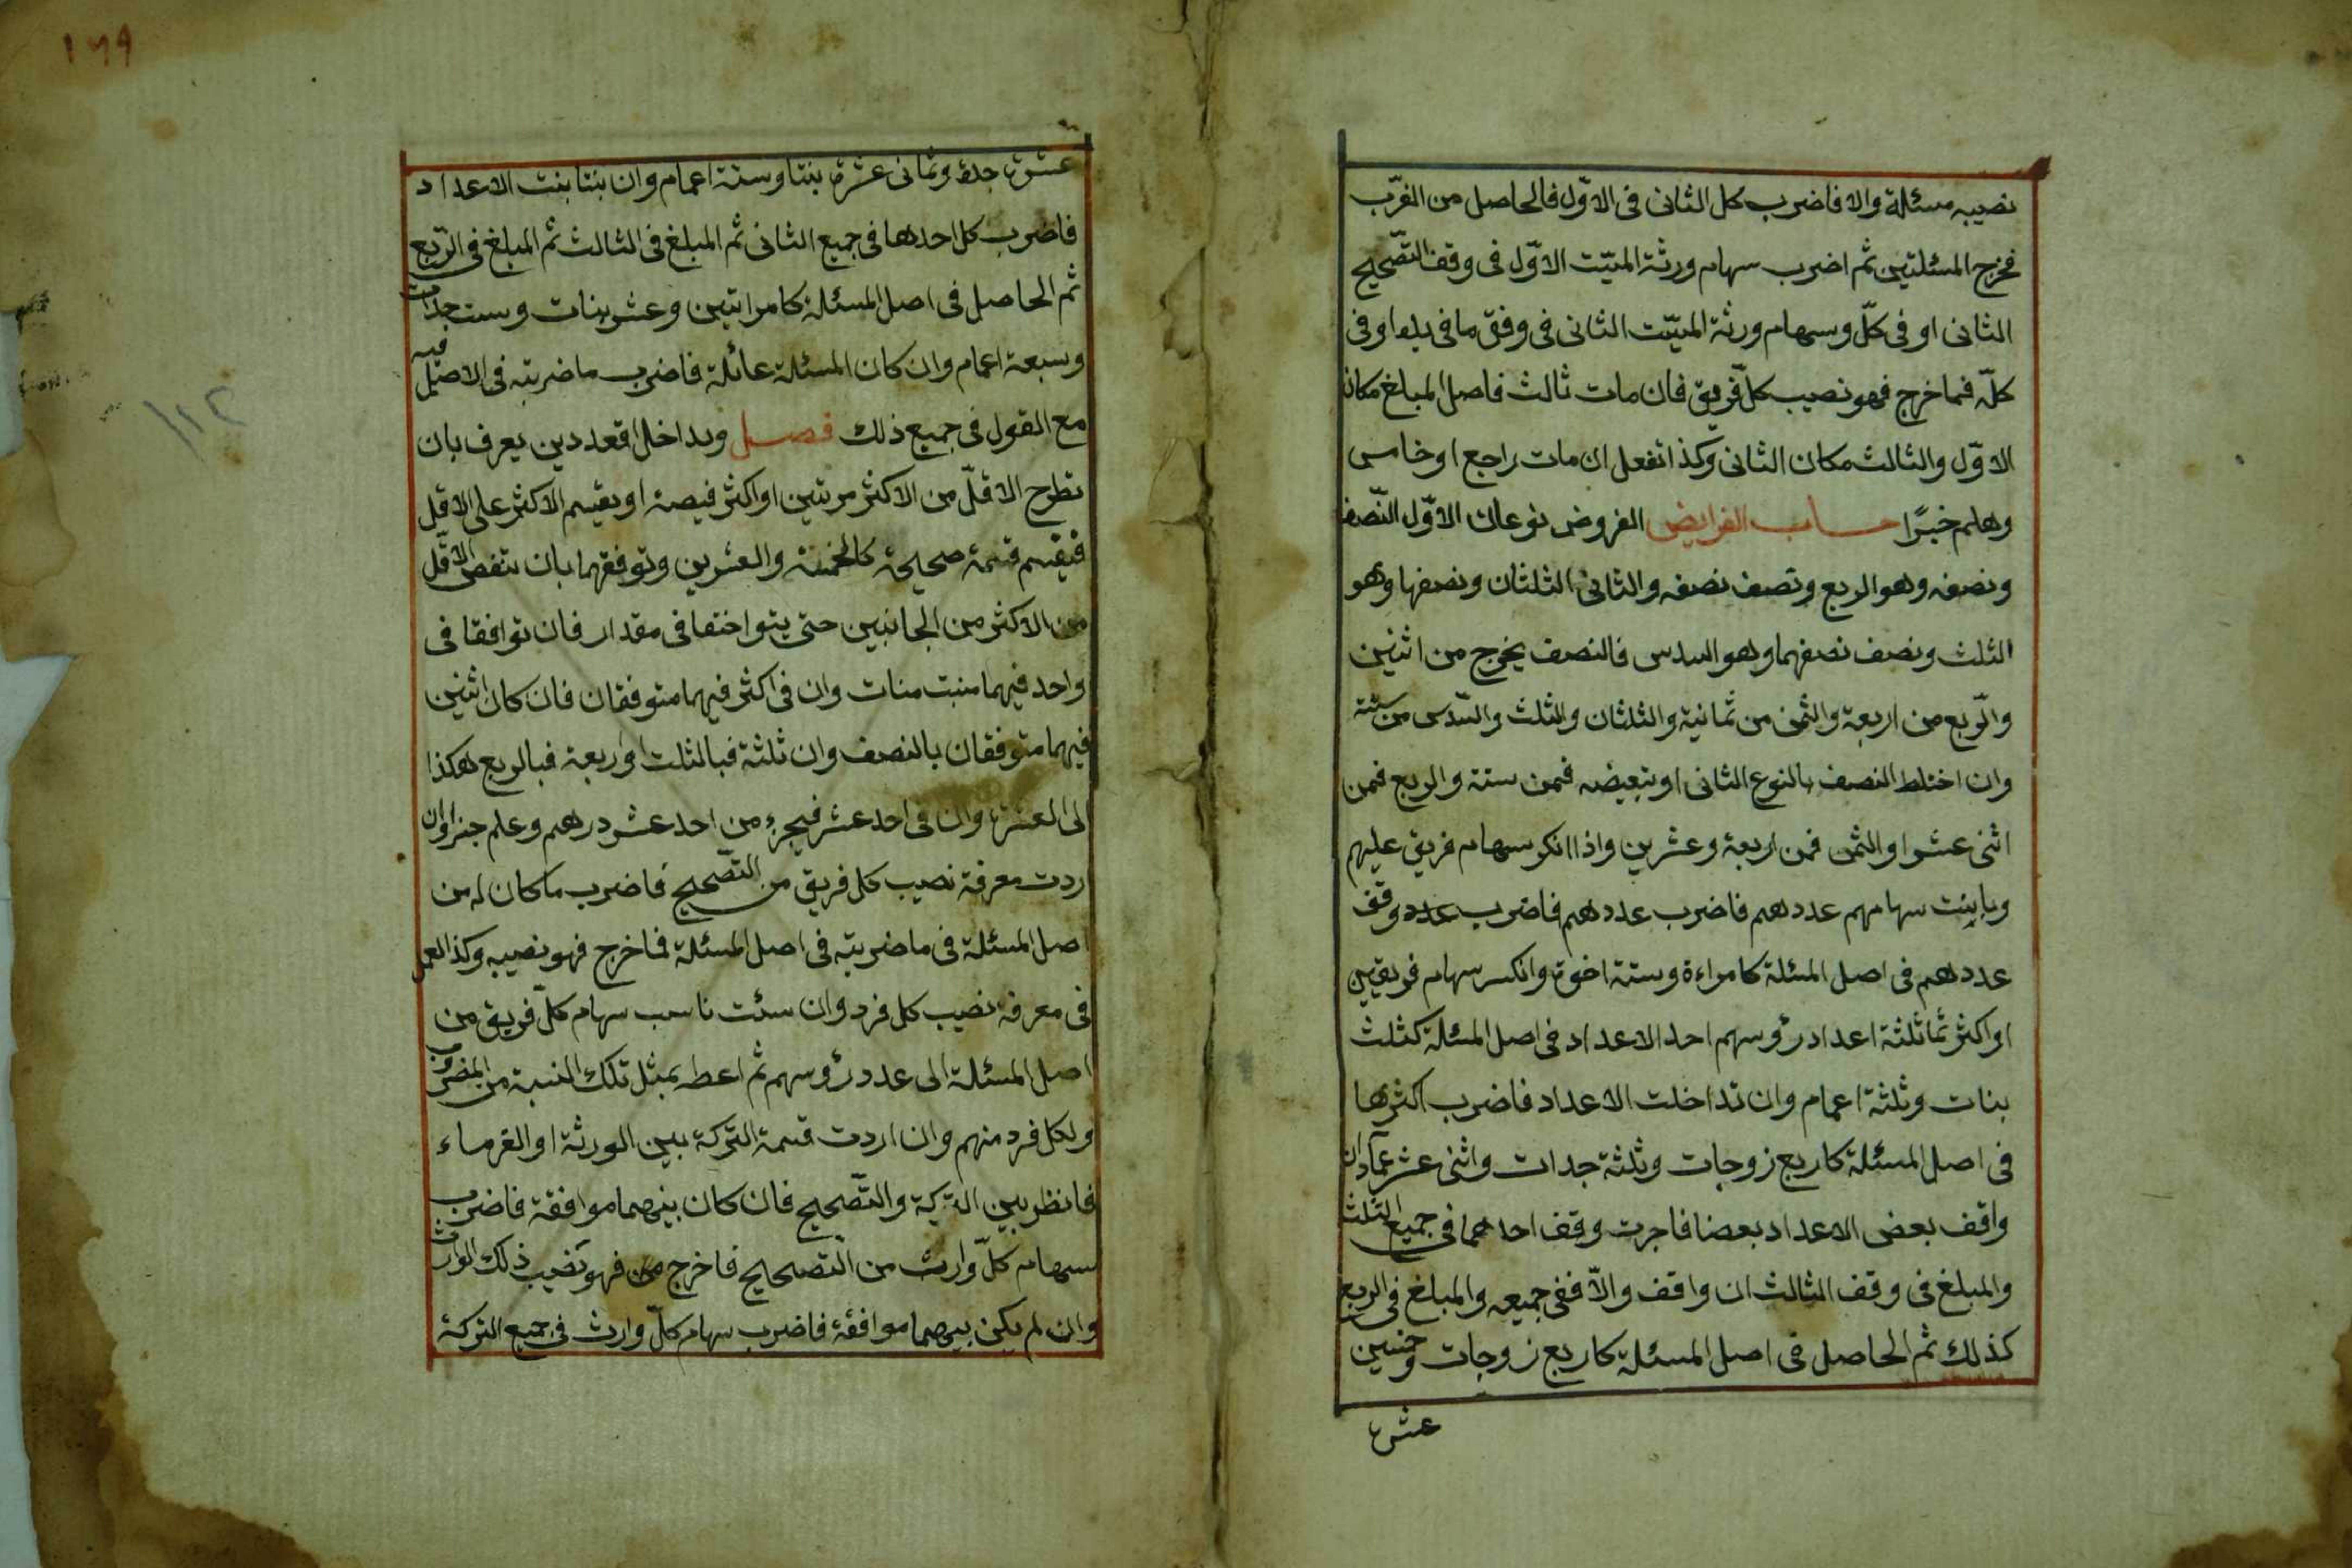 نصيبه مسئلة والا فاضرب كل الثانى فى الاوّل فالحاصل من الضّرب
مخرج المسئلتين ثم اضرب سهام ورثة الميّت الاوّل فى وقف التّصحيح
الثانى او فى كلّ وسهام ورثة الميّت الثانى فى وفق ما فى يده او فى
كلّه فما خرج فهو نصيب كلّ فريق فان مات ثالث فاصل المبلغ مكان
الاوّل والثالث مكان الثانى وكذا تفعل ان مات رابع او خامس
وهلم خبرًا حساب الفرايض الفروض نوعان الاوّل النّصف
ونصفه وهو الربع ونصف نصفه والثانى الثلثان ونصفها وهو
الثلث ونصف نصفهما وهو السدس فالنصف يخرج من اثنين
والرّبع من اربعة والثمن من ثمانية والثلثان والثلث والسّدس من ستة
وان اختلط النصف بالنوع الثانى او ببعيضه فمن ستة والربع فمن
اثنى عشر او الثمن فمن اربعة وعشرين واذا انكر سهام فريق عليهم
وباينت سهامهم عددهم فاضرب عددهم فاضرب عدد وقف
عددهم فى اصل المسئلة كامراءة وستة اخوة وانكسر سهام فريقين
او اكثر ثماثلثة اعداد رؤسهم احد الاعداد فى اصل المسئلة كثلث
بنات وثلثة اعمام وان تداخلت الاعداد فاضرب اكثرها
فى اصل المسئلة كاربع زوجات وثلثة جدات واثنى عشر عمّا وان
واقف بعض الاعداد بعضا فاجرت وقف احدهما فى جميع الثلث
والمبلغ فى وقف الثالث ان واقف والاّ ففى جميعه والمبلغ فى الربع
كذلك ثم الحاصل فى اصل المسئلة كاربع زوجات وخمسين
عشرة
١٦٩
عشرة جدة وثمانى عشرة بنتا وستة اعمام وان بنتا بنت الاعداد
فاضرب كل احدها فى جميع الثانى ثم المبلغ فى الثالث ثم المبلغ فى الرّبع
ثم الحاصل فى اصل المسئلة كامراتين وعشر بنات وست جدات
وسبعة اعمام وان كان المسئلة عائلة فاضرب ما ضربته فى الاصل فيه
مع القول فى جميع ذلك فصل وبداخل اقعددين يعرف بان
تطرح الاقلّ من الاكثر مرتين او اكثر فيصة او بقيسم الاكثر على الاقل
فيقيسم قسمة صحيحة كالخمسة والعشرين وتوفقهما بان تنفص الاقّل
من الاكثر من الجانبين حتى يتواختفا فى مقدار فان توافقا فى
واحد فيهما منبت منات وان فى اكثر فيهما متوفقان فان كان اثنين
فيهما متوفقان بالنصف وان ثلثة فبالثلت او ربعة فبالربع هكذا
الى العشرة وان فى احد عشر فيجزء من احد عشر درهم وعلم جزا وان
اردت معرفة نصيب كل فريق من التّصحيح فاضرب ما كان له من
اصل المسئلة فى ما ضربته فى اصل المسئلة فما خرج فهو نصيبه وكذا العمل
فى معرفة نصيب كل فرد وان سئت ناسب سهام كلّ فريق من
اصل المسئلة الى عدد رؤسهم ثم اعطه بمثل تلك النسبة من المضروب
ولكل فرد منهم وان اردت قسمة التركة بين الورثة او الغرماء
فانظر بين التركة والتّصحيح فان كان بينهما موافقة فاضرب
سهام كلّ وارث من التصحيح فاخرج من فهو نصيب ذلك الوارث
وان لم يكن بينهما موافقة فاضرب سهام كلّ وارث فى جميع التركة
١١٢